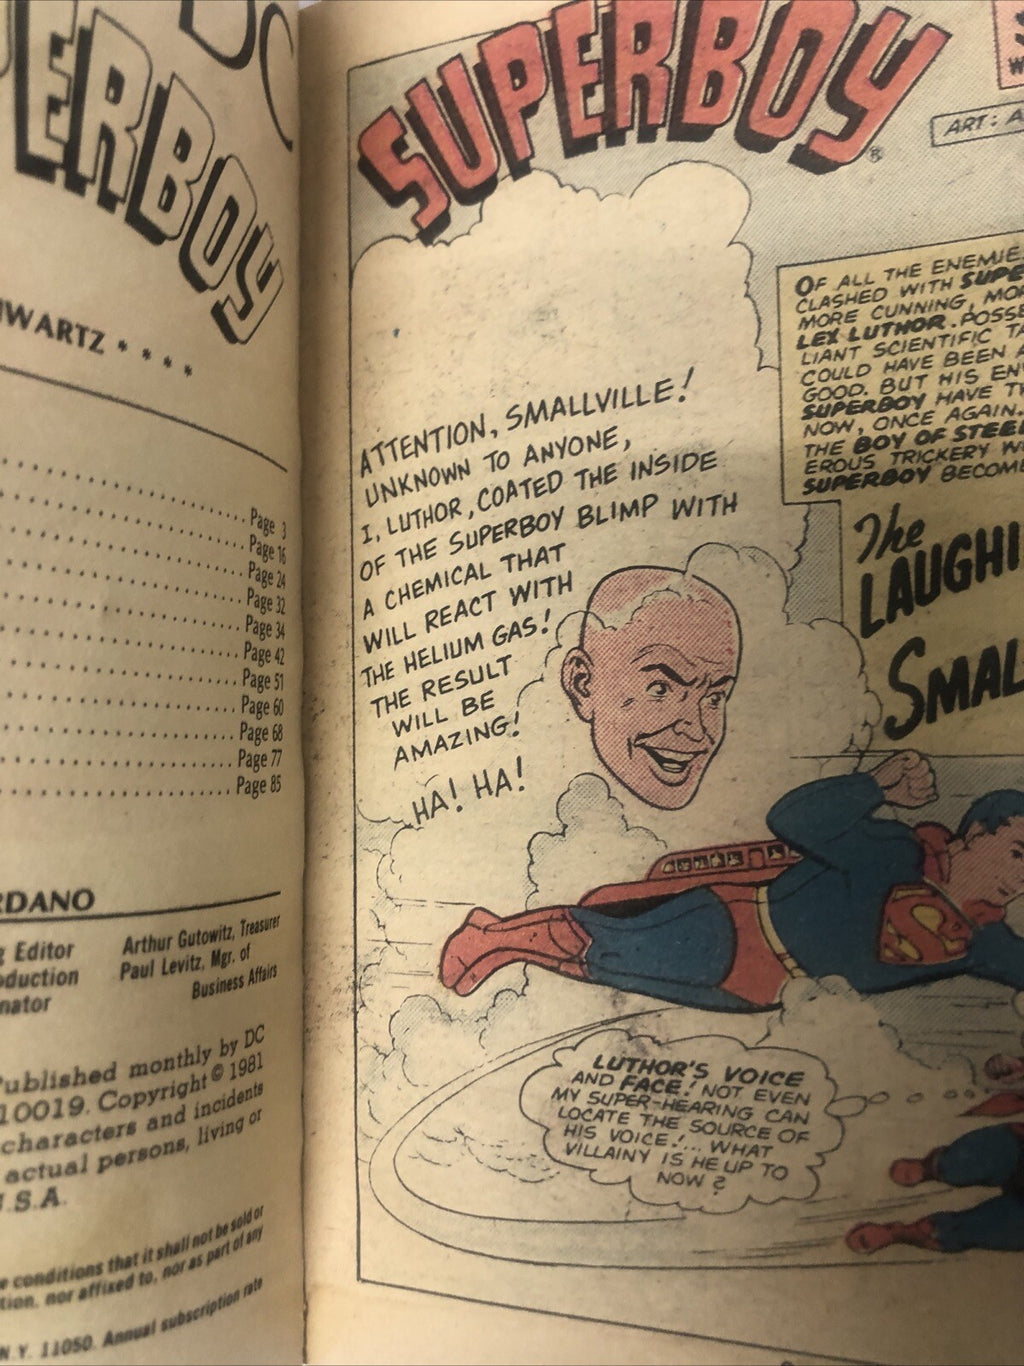 SUPERBOY
WARTZ • • • •
Page 3
Page 16
Page 24
Page 32
Page 34
Page 42
Page 51
Page 60
Page 68
Page 77
Page 85
Editor
Arthur Gutowitz, Treasurer
Paul Levitz, Mgr. of
Business Affairs
Published monthly by DC
10019. Copyright © 1981
characters and incidents
actual persons, living or
U.S.A.
conditions that it shall not be sold or
nor affixed to, nor as part of any
N.Y. 11050. Annual subscription rate
SUPERBOY®
ART:
OF ALL THE
CLASHED WITH
MORE CUNNING,
LEX LUTHOR.
SCIENTIFIC
COULD HAVE BEEN
GOOD. BUT HIS
SUPERBOY HAVE
NOW, ONCE AGAIN,
THE BOY OF STEEL
TRICKERY
SUPERBOY
The
ATTENTION, SMALLVILLE!
UNKNOWN TO ANYONE,
I, LUTHOR, COATED THE INSIDE
OF THE SUPERBOY BLIMP WITH
A CHEMICAL THAT
WILL REACT WITH
THE HELIUM GAS!
THE RESULT
WILL BE
AMAZING!
HA! HA!
LUTHOR'S VOICE
AND FACE! NOT EVEN
MY SUPER-HEARING CAN
LOCATE THE SOURCE OF
HIS VOICE!... WHAT
VILLAINY IS HE UP TO
NOW?